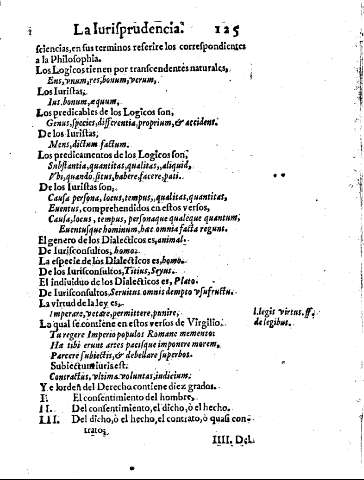 La Iurisprudencia. 125
sciencias, en sus terminos referire los correspondientes
a la Philosophia.
Los Logicos tienen por transcendentes naturales,
Ens, vnum, res, bonum, verum.
Los Iuristas,
Ius, bonum, æquum,
Los predicables de los Logicos son,
Genus, species, differentia, proprium, & accident.
De los Iuristas,
Mens, dictum factum.
Los predicamentos de los Logicos son,
Substantia, quantitas, qualitas, aliquid,
Vbi, quando, situs, habere, facere, pati.
De los Iuristas son,
Causa persona, locus, tempus, qualitas, quantitas,
Euentus, comprehendidos en estos versos,
Causa, locus, tempus, personaque qualeque quantum,
Euentusque hominum, hæc omnia facta regunt.
El genero de los Dialecticos es, animal.
De Iurisconsultos, homo.
La especie de los Dialecticos es, homo.
De los Iurisconsultos, Titius, Seyus.
El indiuiduo de los Dialecticos es, Plato.
De Iurisconsultos, Seruitus omnis dempto vsufructu.
La virtud de la ley es,
Imperare, vetare, permittere, punire,
l. legis virtus. ff.
La qual se contiene en estos versos de Virgilio.
de legibus.
Tu regere Imperio populos Romane memento:
Hæ tibi erunt artes pacisque imponere morem,
Parcere subiectis, & debellare superbos.
Subiectum iuris est:
Contractus, vltima voluntas, iudicium:
Y el orden del Derecho contiene diez grados.
I. El consentimiento del hombre,
II. Del consentimiento, el dicho, ò el hecho.
III. Del dicho, ò el hecho, el contrato, ò quasi con-
tratos
IIII. Del